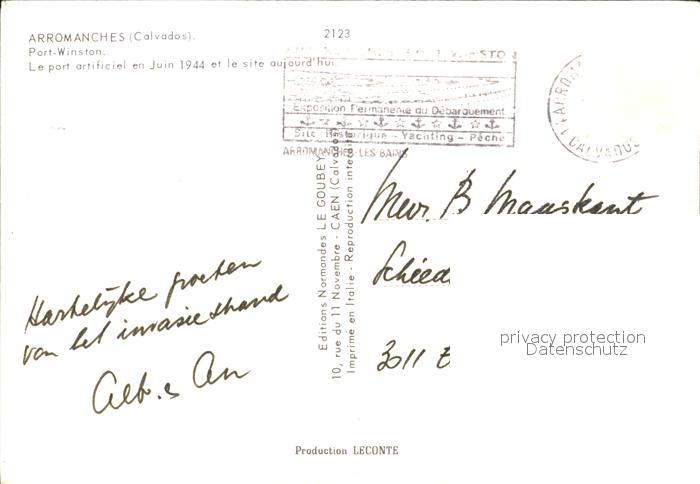 ARROMANCHES (Calvados).
2123
Port-Winston.
Le port artificiel en Juin 1944 et le site aujourd'hui.
Exposition Permanente du Débarquement
Site Historique - Yachting - Pêche
ARROMANCHES-LES-BAINS
CALVADOS
Editions Normandes LE GOUBEY
10, rue du 11 Novembre - CAEN (Calvados)
Imprimé en Italie - Reproduction interdite
Mevr. B Mauskant
Schied
3011 E
Hartelijke groeten
van het invasiestrand
An
privacy protection
Datenschutz
Production LECONTE